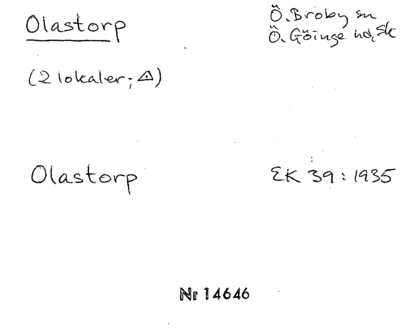 Olastorp
Ö. Broby sn
Ö. Göinge hd, Sk
(2 lokaler; △)
Olastorp
EK 39 : 1935
Nr 14646